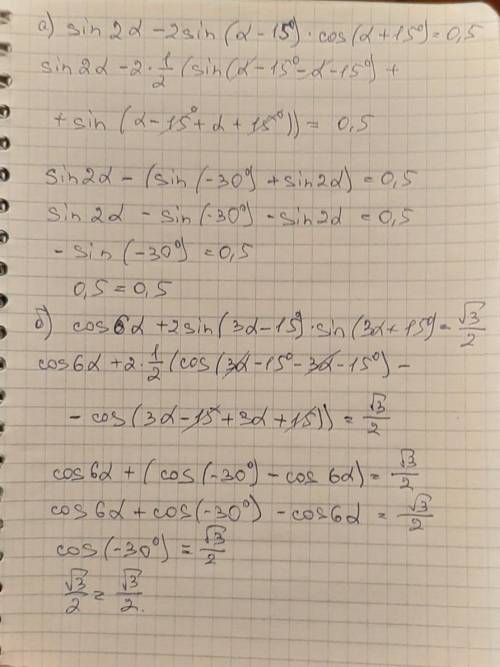 а) sin 2α − 2sin (α − 15°) · cos (α + 15°) = 0,5
sin 2α − 2 · 1/2 (sin (α − 15° − α − 15°) +
+ sin (α − 15° + α + 15°)) = 0,5
sin 2α − (sin (−30°) + sin 2α) = 0,5
sin 2α − sin (−30°) − sin 2α = 0,5
− sin (−30°) = 0,5
0,5 = 0,5
б) cos 6α + 2 sin (3α − 15°) · sin (3α + 15°) = √3/2
cos 6α + 2 · 1/2 (cos (3α − 15° − 3α − 15°) −
− cos (3α − 15 + 3α + 15)) = √3/2
cos 6α + (cos (−30°) − cos 6α) = √3/2
cos 6α + cos (−30°) − cos 6α = √3/2
cos (−30°) = √3/2
√3/2 = √3/2.